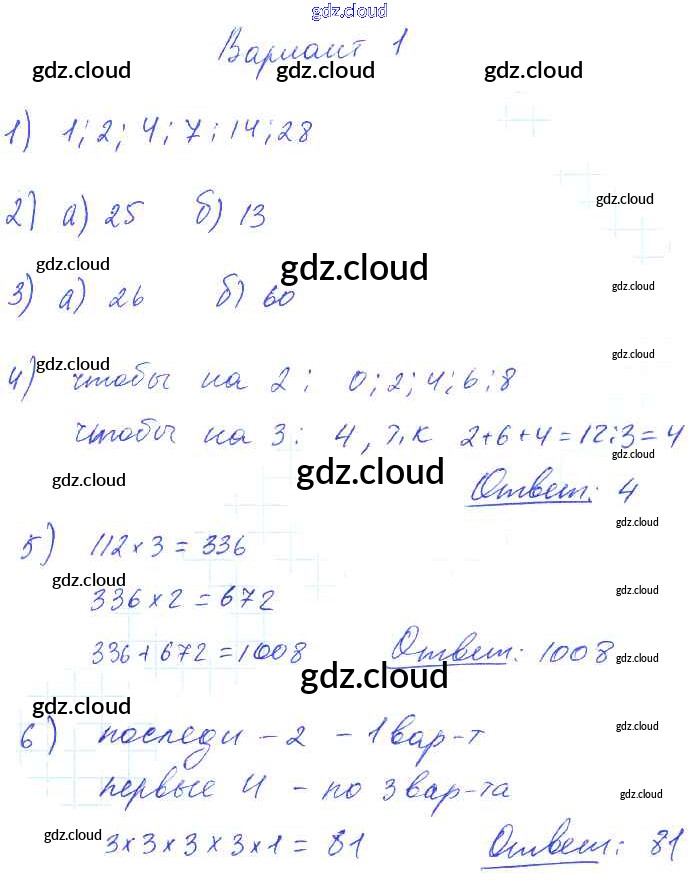 gdz.cloud
Вариант 1
gdz.cloud gdz.cloud gdz.cloud
1) 1; 2; 4; 7; 14; 28
gdz.cloud
2) а) 25 б) 13
gdz.cloud gdz.cloud
gdz.cloud
3) а) 26 б) 60
gdz.cloud gdz.cloud
4) чтобы на 2: 0; 2; 4; 6; 8
чтобы на 3: 4, т.к 2+6+4=12:3=4
gdz.cloud
gdz.cloud gdz.cloud
Ответ: 4
gdz.cloud
5) 112×3=336
gdz.cloud gdz.cloud
336×2=672
336+672=1008 Ответ: 1008
gdz.cloud gdz.cloud
gdz.cloud
6) последн – 2 – 1 вар-т
gdz.cloud
первые 4 – по 3 вар-та
gdz.cloud
gdz.cloud
3×3×3×3×1=81 Ответ: 81